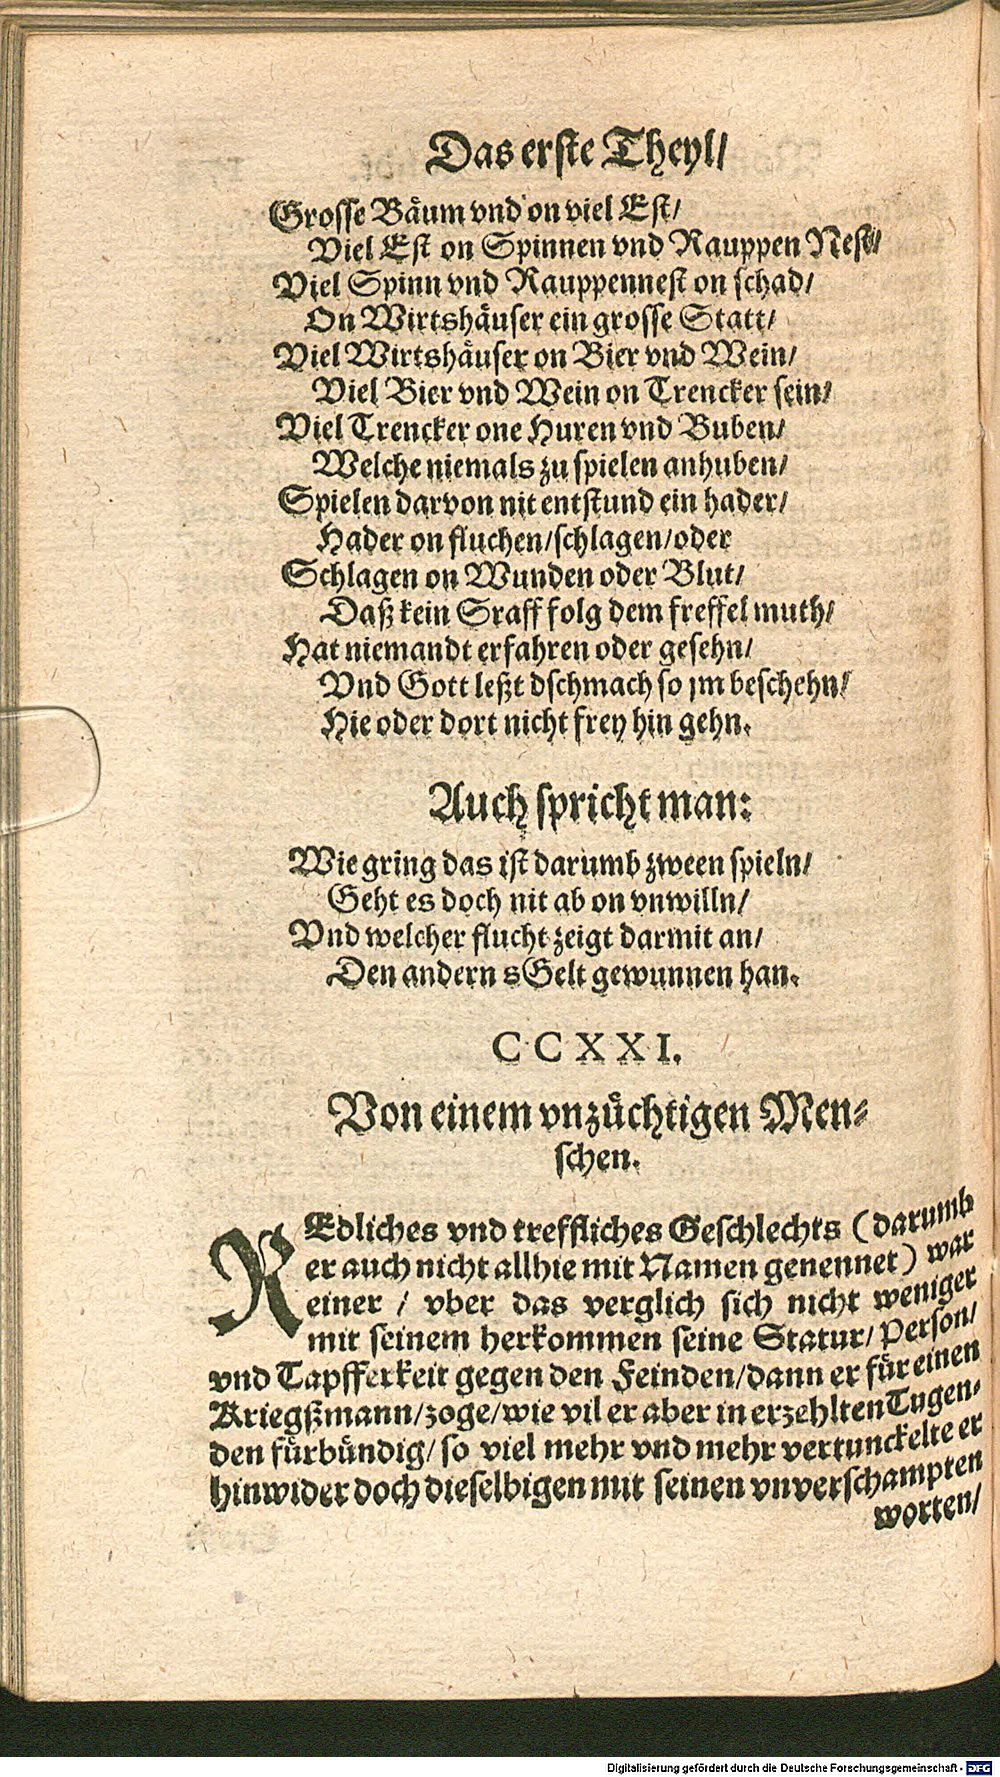 Das erste Theyl/
Grosse Bäum vnd on viel Est/
Viel Est on Spinnen vnd Rauppen Nest/
Viel Spinn vnd Rauppennest on schad/
On Wirtshäuser ein grosse Statt/
Viel Wirtshäuser on Bier vnd Wein/
Viel Bier vnd Wein on Trencker sein/
Viel Trencker one Huren vnd Buben/
Welche niemals zu spielen anhuben/
Spielen darvon nit entstund ein hader/
Hader on fluchen/schlagen/oder
Schlagen on Wunden oder Blut/
Daß kein Sraff folg dem freffel muth/
Hat niemandt erfahren oder gesehn/
Vnd Gott leßt dschmach so jm beschehn/
Hie oder dort nicht frey hin gehn.
Auch spricht man:
Wie gring das ist darumb zween spieln/
Geht es doch nit ab on vnwilln/
Vnd welcher flucht zeigt darmit an/
Den andern sGelt gewunnen han.
CCXXI.
Von einem vnzüchtigen Men-
schen.
REdliches vnd treffliches Geschlechts (darumb
er auch nicht allhie mit Namen genennet) war
einer / vber das verglich sich nicht weniger
mit seinem herkommen seine Statur/Person/
vnd Tapfferkeit gegen den Feinden/dann er für einen
Kriegßmann/zoge/wie vil er aber in erzehlten Tugen-
den fürbündig/so viel mehr vnd mehr vertunckelte er
hinwider doch dieselbigen mit seinen vnverschampten
worten/
Digitalisierung gefördert durch die Deutsche Forschungsgemeinschaft - DFG